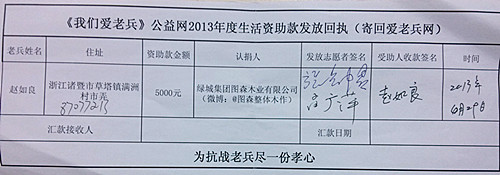 《我们爱老兵》公益网2013年度生活资助款发放回执（寄回爱老兵网）
老兵姓名 住址 资助款金额 认捐人 发放志愿者签名 受助人收款签名 时间
赵如良 浙江诸暨市草塔镇满洲村市弄 5000元 绿城集团图森木业有限公司（微博：@图森整体木作） 赵如良 2013年6月29日
87077213
汇款接收人 汇款日期
为抗战老兵尽一份孝心